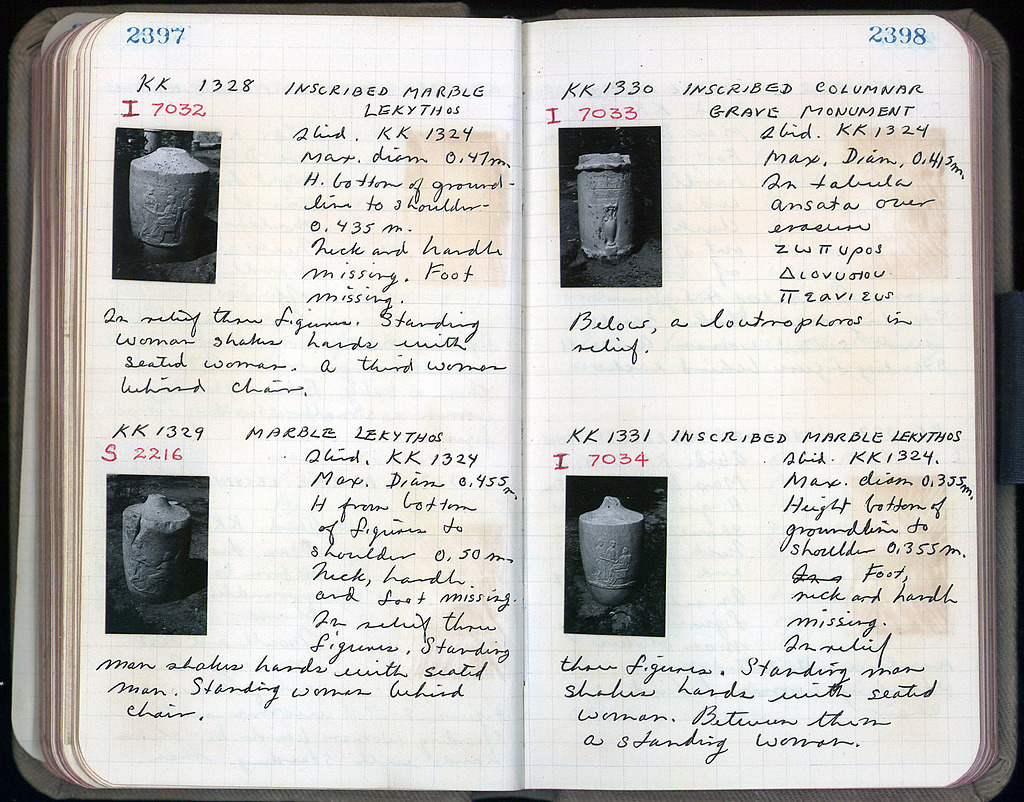 2397
KK 1328 INSCRIBED MARBLE
I 7032 LEKYTHOS
Ibid. KK 1324
Max. diam 0.47m
H. bottom of ground-
line to shoulder-
0.435 m.
Neck and handle
missing. Foot
missing.
In relief three figures. Standing
woman shakes hands with
seated woman. A third woman
behind chair.
KK 1329 MARBLE LEKYTHOS
S 2216 Ibid. KK 1324
Max. Diam 0.455m.
H from bottom
of figures to
shoulder 0.50 m.
Neck, handle
and foot missing.
In relief three
figures. Standing
man shakes hands with seated
man. Standing woman behind
chair.
2398
KK 1330 INSCRIBED COLUMNAR
I 7033 GRAVE MONUMENT
Ibid. KK 1324
Max. Diam, 0.415m.
In tabula
ansata over
erasure
ΖωΠυρος
Διονυσιου
Πεανιευς
Below, a loutrophoros in
relief.
KK 1331 INSCRIBED MARBLE LEKYTHOS
I 7034 Ibid. KK 1324.
Max. diam 0.355m.
Height bottom of
groundline to
shoulder 0.355 m.
Foot,
neck and handle
missing.
In relief
three figures. Standing man
shakes hands with seated
woman. Between them
a standing woman.